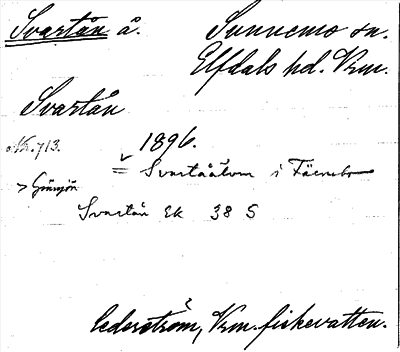 Svartån å. Sunnemo sn.
Elfdals hd. Vrm.
Svartån
Nr. 713. 1896.
= Svartåälven i Färnebo
> Grässjön
Svartån Ek 38 S
Cederström, Vrm. fiskevatten.